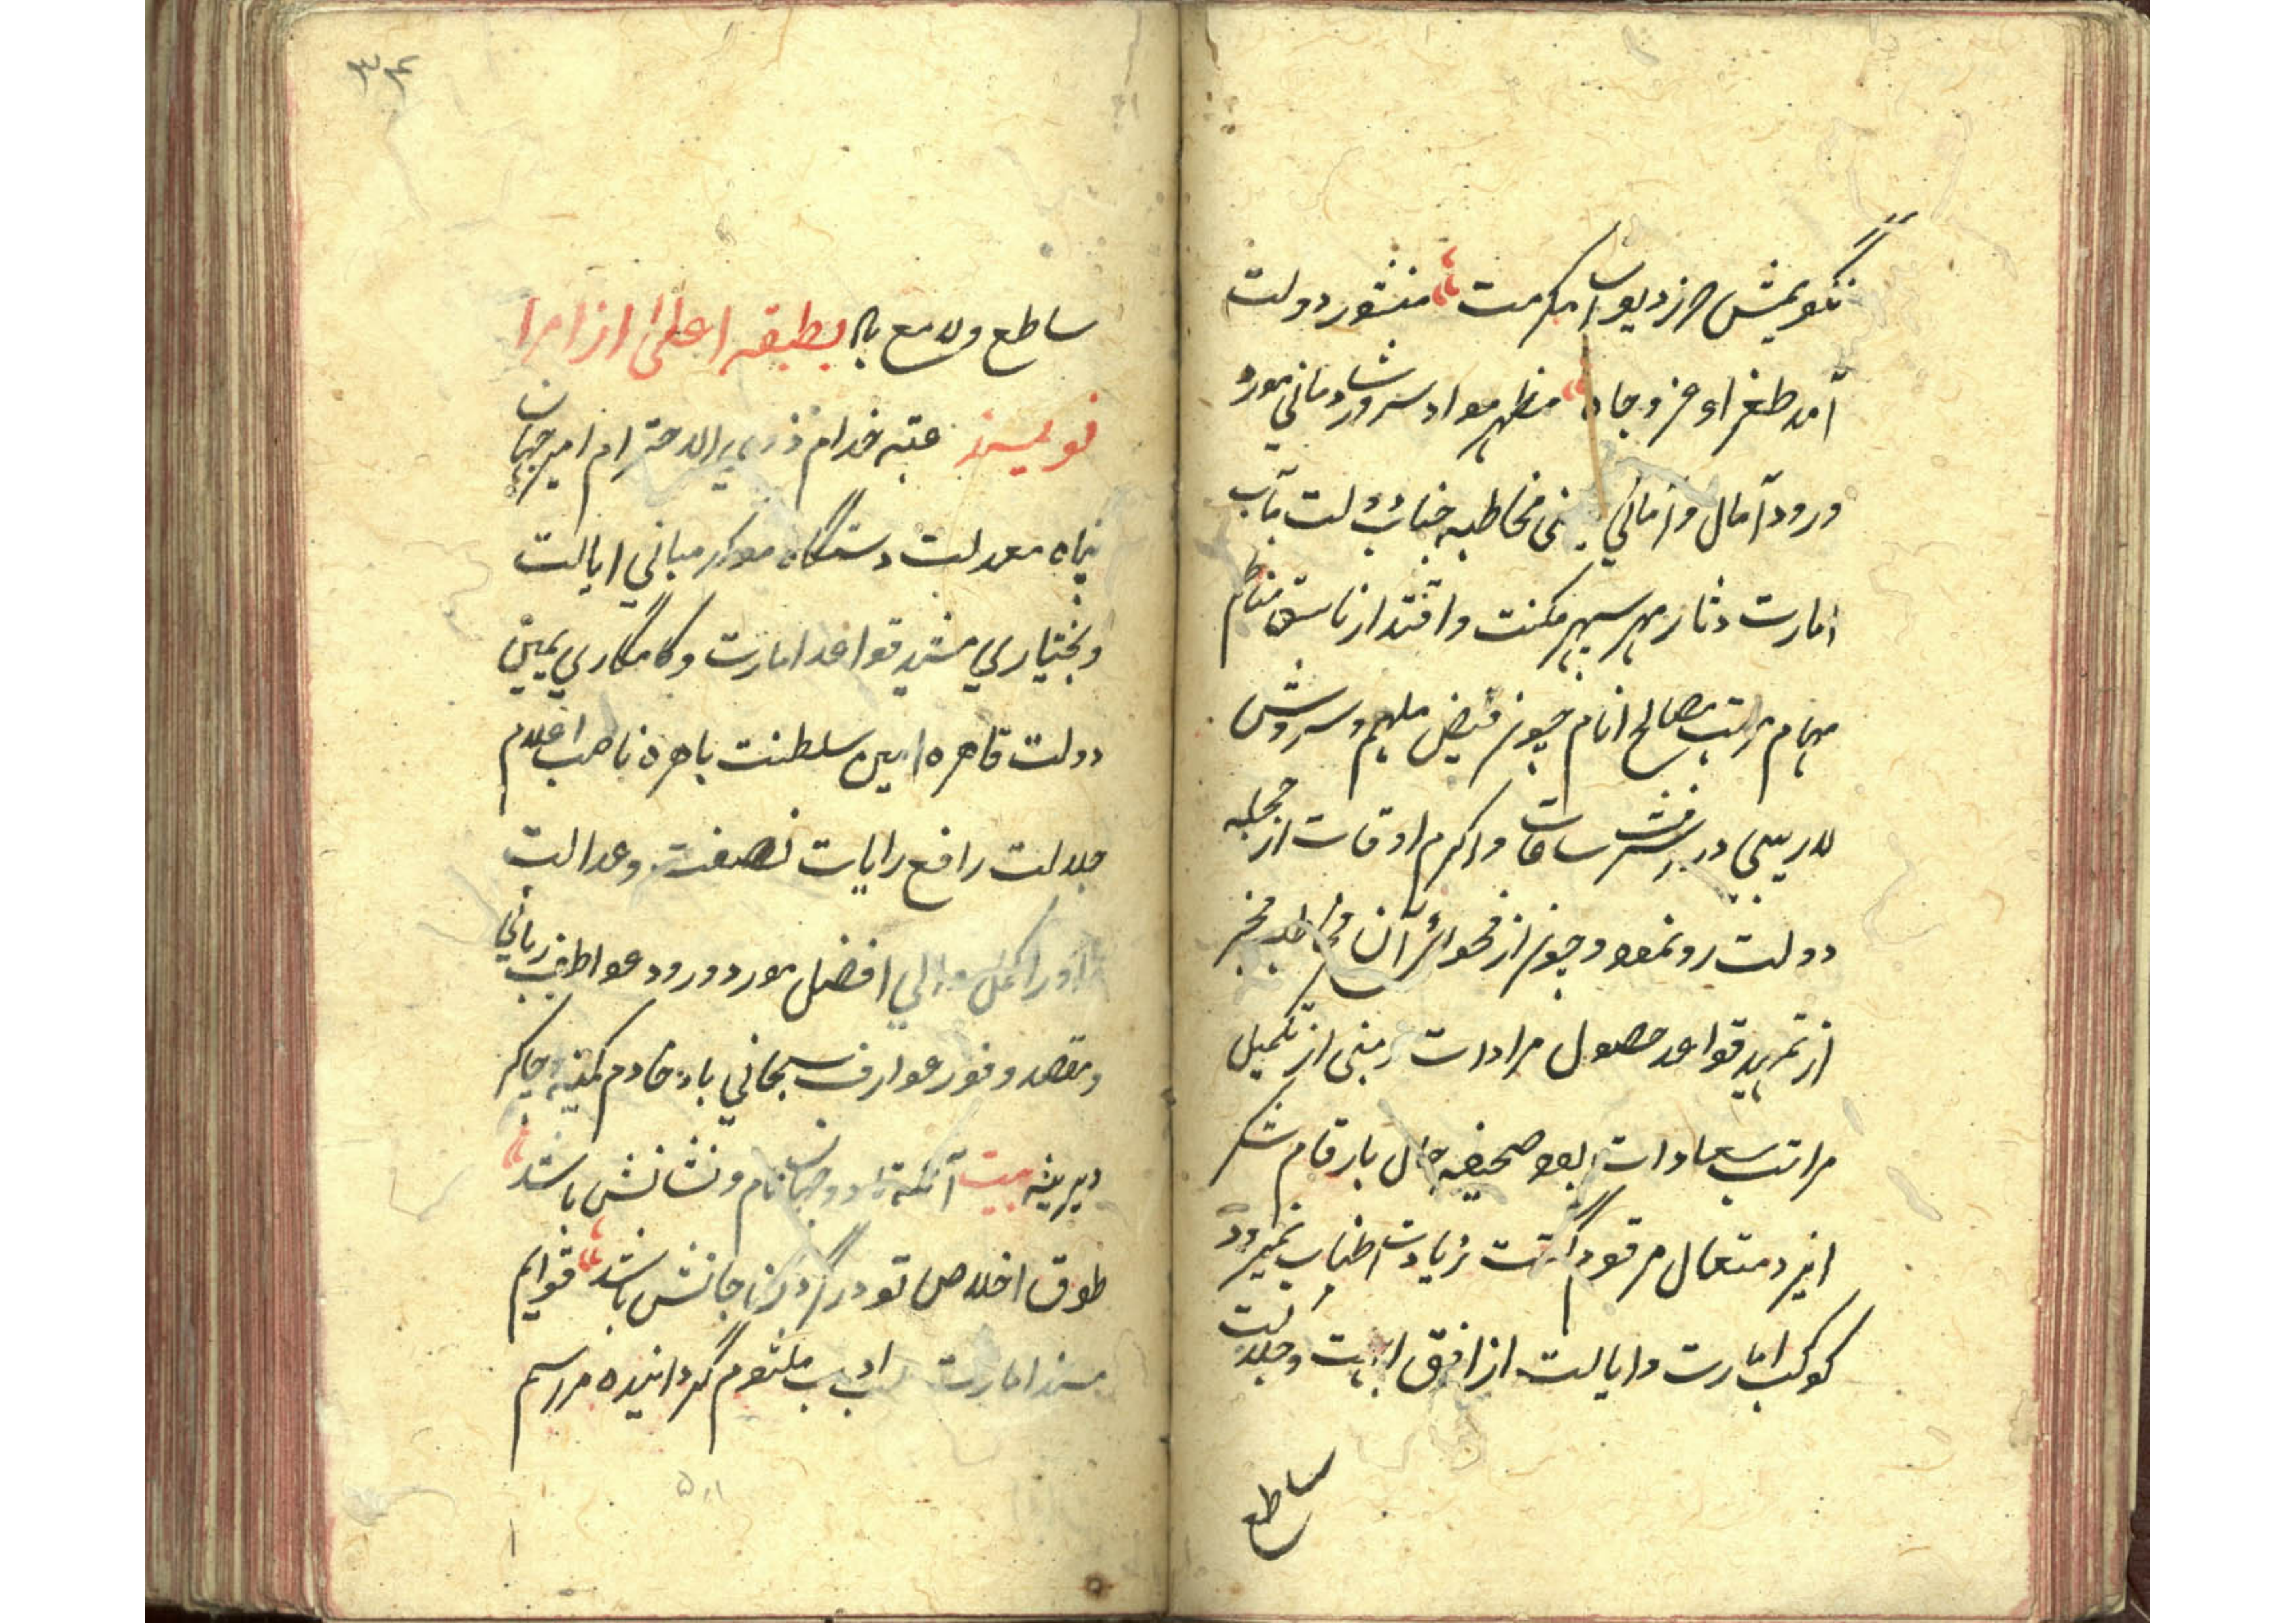 نگویمش حرز دیوان مکرمت منشور دولت
آمد طغراء عز و جاه مظهر مواد سرور و شادمانی مورد
ورود آمال و امانی مخاطبه جناب دولت مآب
امارت دثار مهر سپهر مکنت و اقتدار ناسق مناظم
مهام مرتب مصالح انام چون فیض ملهم و سروش
لاریبی در اشرف ساعات و اکرم اوقات از حجله
دولت رو نمود و چون از فحوای آن مخاطبه مخبر
از تمهید قواعد حصول مرادات منبی از تکمیل
مراتب سعادات بود صحیفه حال بارقام شکر
ایزد متعال مرقوم گشت زیادت اطناب نمیرود
کوکب امارت و ایالت از افق ابهت و جلالت
ساطع
۳۴
ساطع و لامع باد بطبقه اعلی از امرا
نویسند عتبه خدام ذوی الاحترام امیر جهان
پناه معدلت دستگاه موکد مبانی ایالت
و بختیاری مشید قواعد امارت و کامگاری یمین
دولت قاهره امین سلطنت باهره ناصب اعلام
جلالت رافع رایات نصفت و عدالت
افضل مورد ورود عواطف ربانی
و مقصد وفور عوارف سبحانی باد خادم کمینه و چاکر
دیرینه بیت آنکه تا در دو جهان نام و نشانش باشد
طوق اخلاص تو در گردن جانش باشد قوایم
مسند امارت ادب ملثوم گردانیده مراسم